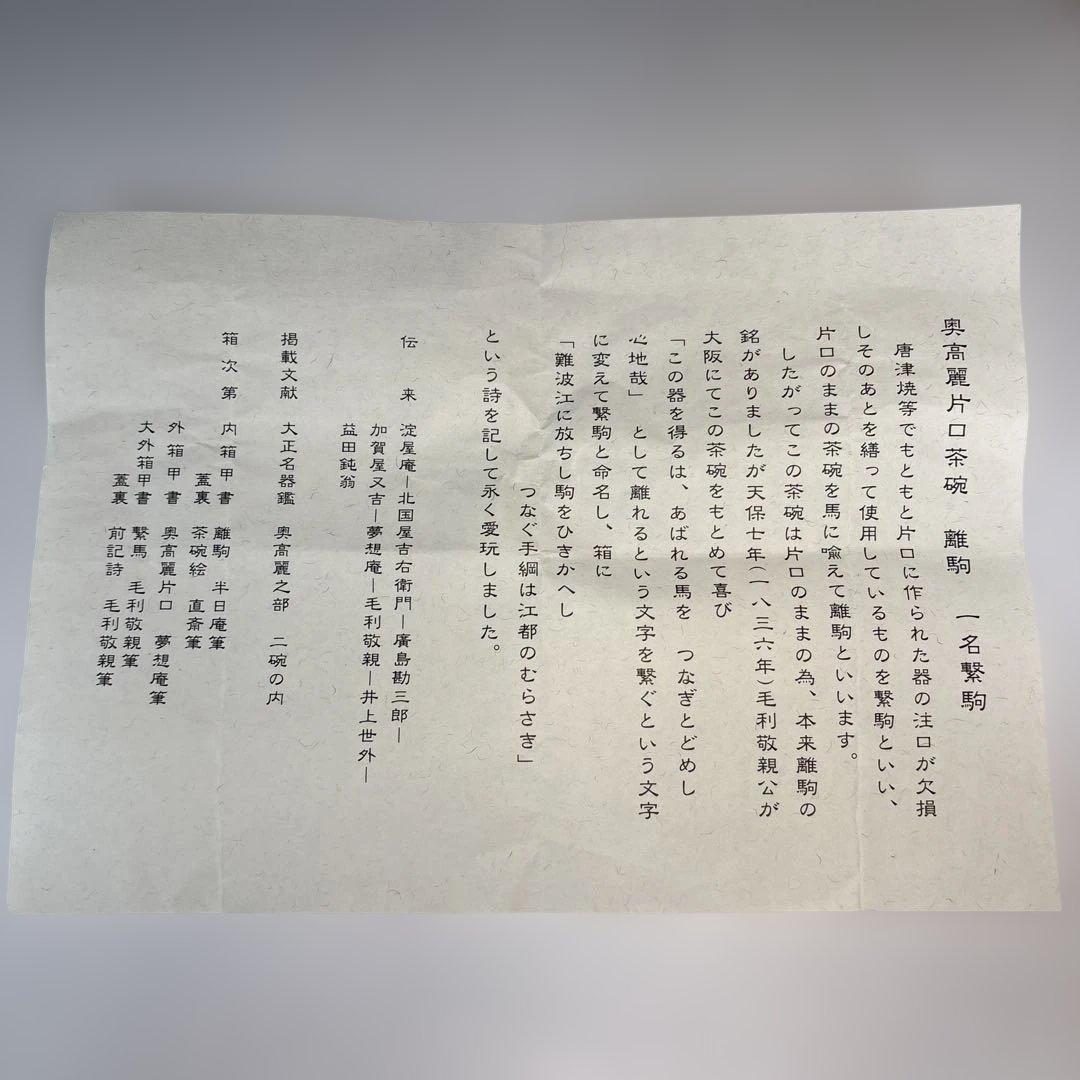 奥高麗片口茶碗　離駒　一名繋駒
唐津焼等でもともと片口に作られた器の注口が欠損
しそのあとを繕って使用しているものを繋駒といい、
片口のままの茶碗を馬に喩えて離駒といいます。
したがってこの茶碗は片口のままの為、本来離駒の
銘がありましたが天保七年(一八三六年)毛利敬親公が
大阪にてこの茶碗をもとめて喜び
「この器を得るは、あばれる馬を　つなぎとどめし
心地哉」　として離れるという文字を繋ぐという文字
に変えて繋駒と命名し、箱に
「難波江に放ちし駒をひきかへし
つなぐ手綱は江都のむらさき」
という詩を記して永く愛玩しました。
伝　来　淀屋庵―北国屋吉右衛門―廣島勘三郎―
加賀屋又吉―夢想庵―毛利敬親―井上世外―
益田鈍翁
掲載文献　大正名器鑑　奥高麗之部　二碗の内
箱次第　内箱甲書　離駒　半日庵筆
蓋裏　茶碗絵　直斎筆
外箱甲書　奥高麗片口　夢想庵筆
大外箱甲書　繋馬　毛利敬親筆
蓋裏　前記詩　毛利敬親筆